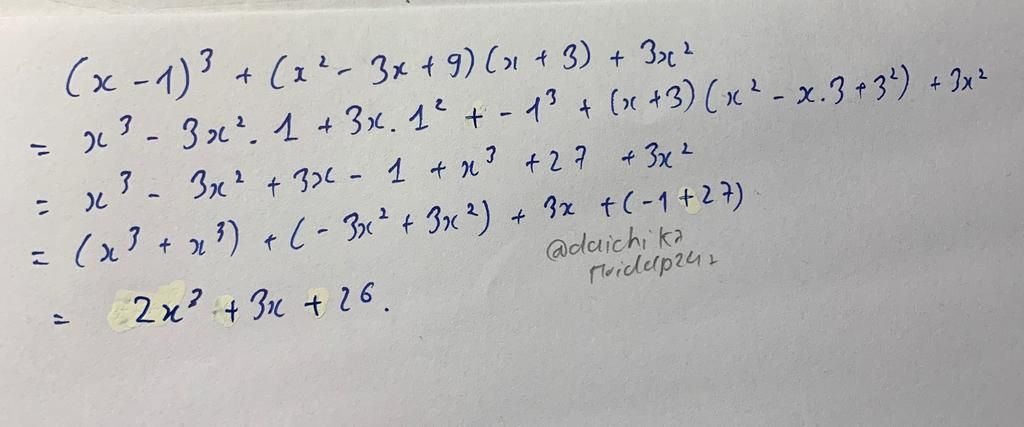 (x - 1)³ + (x² - 3x + 9)(x + 3) + 3x²
= x³ - 3x². 1 + 3x. 1² + - 1³ + (x + 3)(x² - x.3 + 3²) + 3x²
= x³ - 3x² + 3x - 1 + x³ + 27 + 3x²
= (x³ + x³) + (- 3x² + 3x²) + 3x + (-1 + 27)
= 2x³ + 3x + 26.